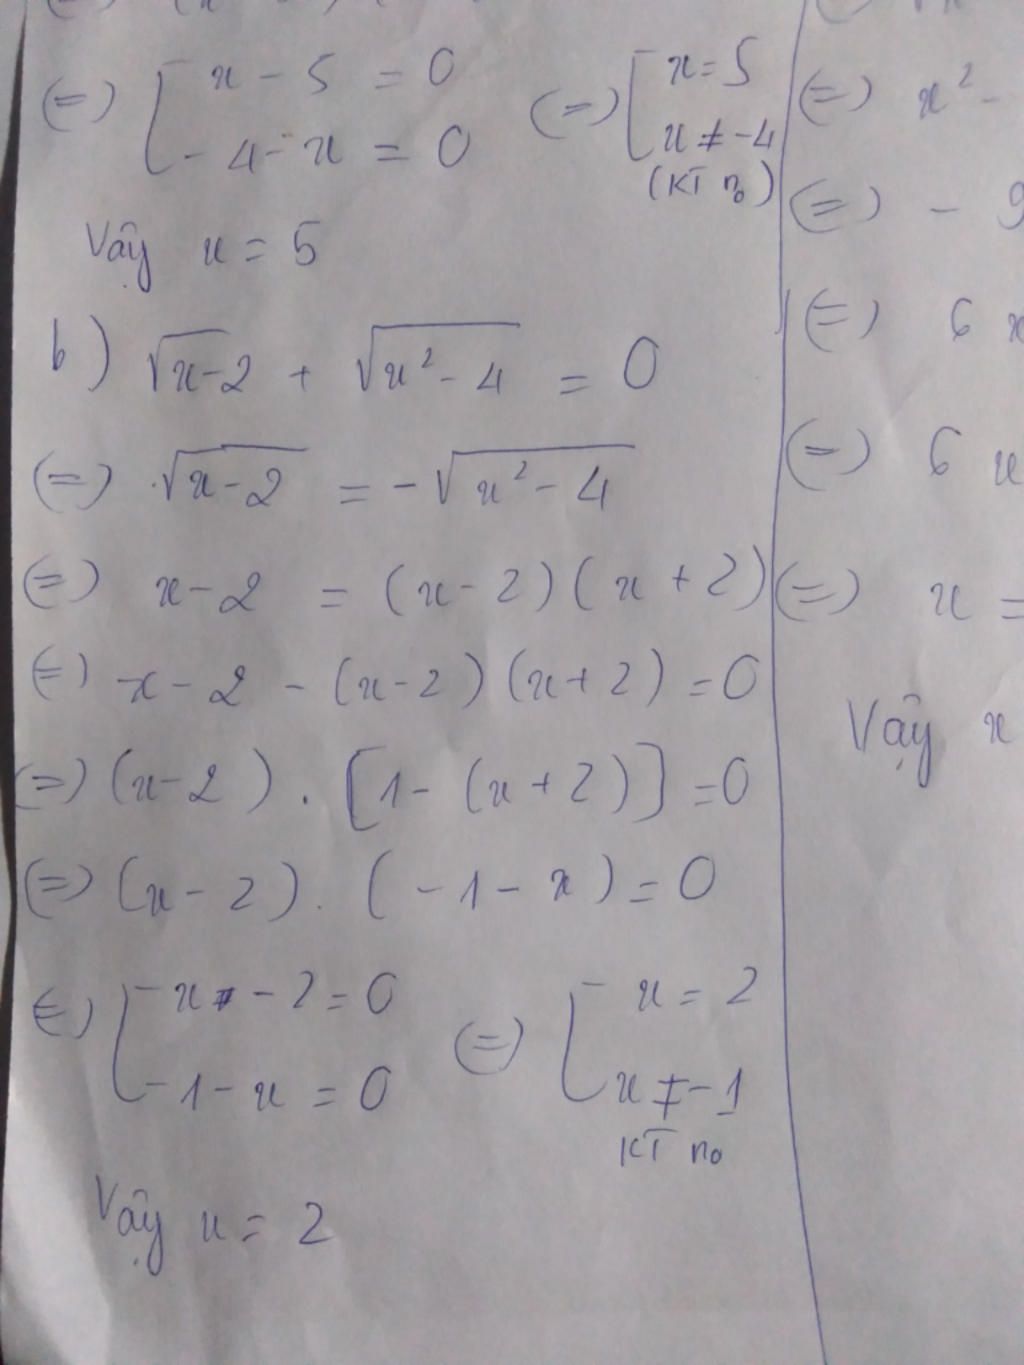 (=) [ x - 5 = 0
- 4 - x = 0
(=) [ x = 5
x ≠ -4
(KT no)
Vậy x = 5
b) √x-2 + √x² - 4 = 0
(=) √x - 2 = - √x² - 4
(=) x - 2 = (x - 2)(x + 2)
(=) x - 2 - (x - 2)(x + 2) = 0
(=) (x - 2) . [1 - (x + 2)] = 0
(=) (x - 2) . (- 1 - x) = 0
(=) [ x - 2 = 0
- 1 - x = 0
(=) [ x = 2
x ≠ - 1
KT no
Vậy x = 2
(=) x² -
(=) - 9
(=) 6 x
(=) 6 x
(=) x =
Vậy x